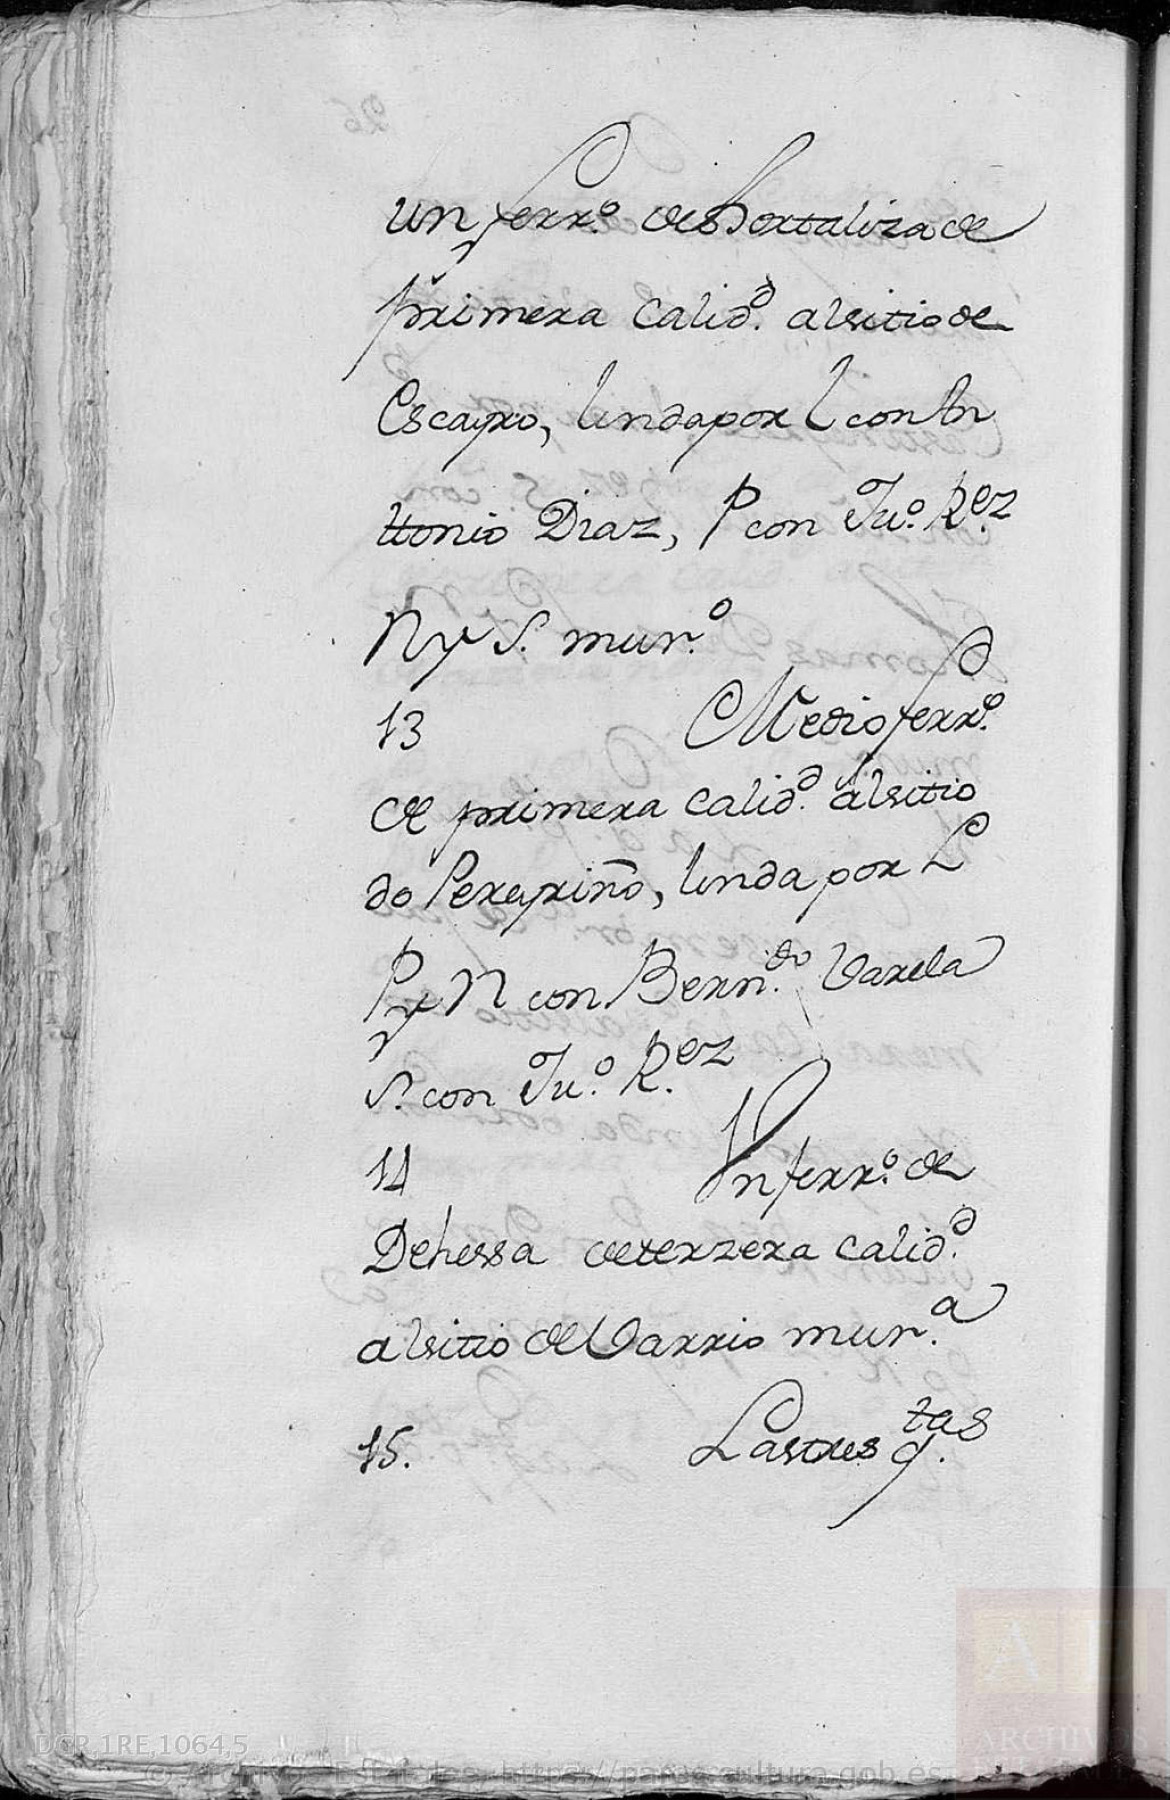 un ferr.º de hortaliza de
primera calid.d al sitio de
Escayro, linda por L con An
ttonio Diaz, P con Ju.º R.ez
N y S. mur.º
13 Medio ferr.º
de primera calid.d al sitio
do Pereyriño, linda por L
P y N con Bern.do Varela
S. con Ju.º R.ez
14 Un ferr.º de
Dehessa de terzera calid.d
al sitio de Varrio mur.a
15. Las tres q.tas
DGR,1RE,1064,5